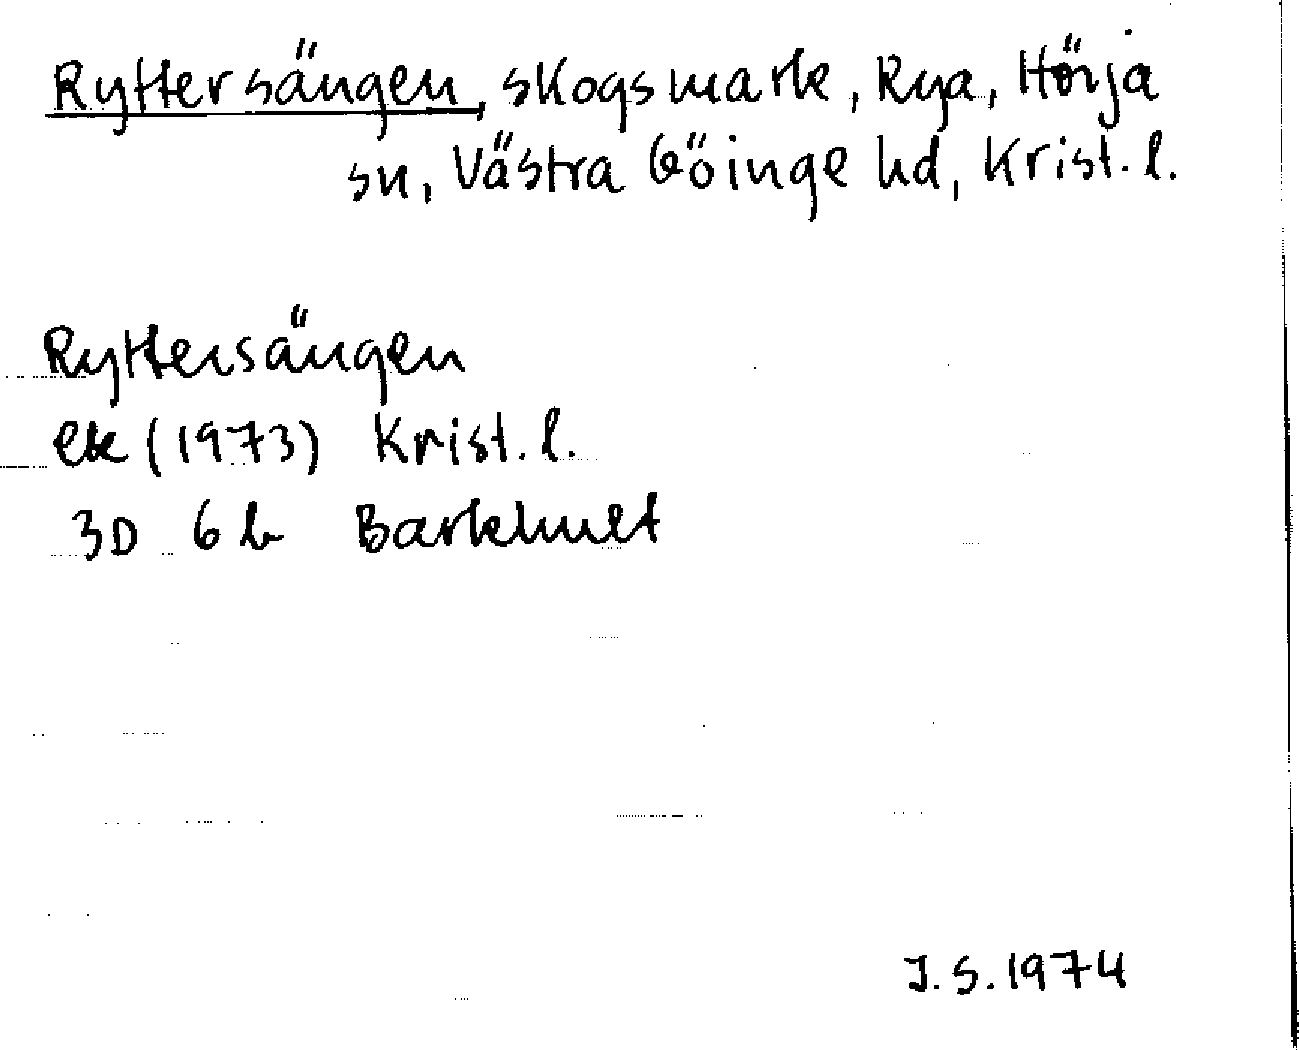 Ryttersängen, skogsmark, Rya, Hörja
sn, Västra Göinge hd, Krist. l.
Ryttersängen
ek (1973) Krist. l.
3D 6b Barkhult
J. S. 1974